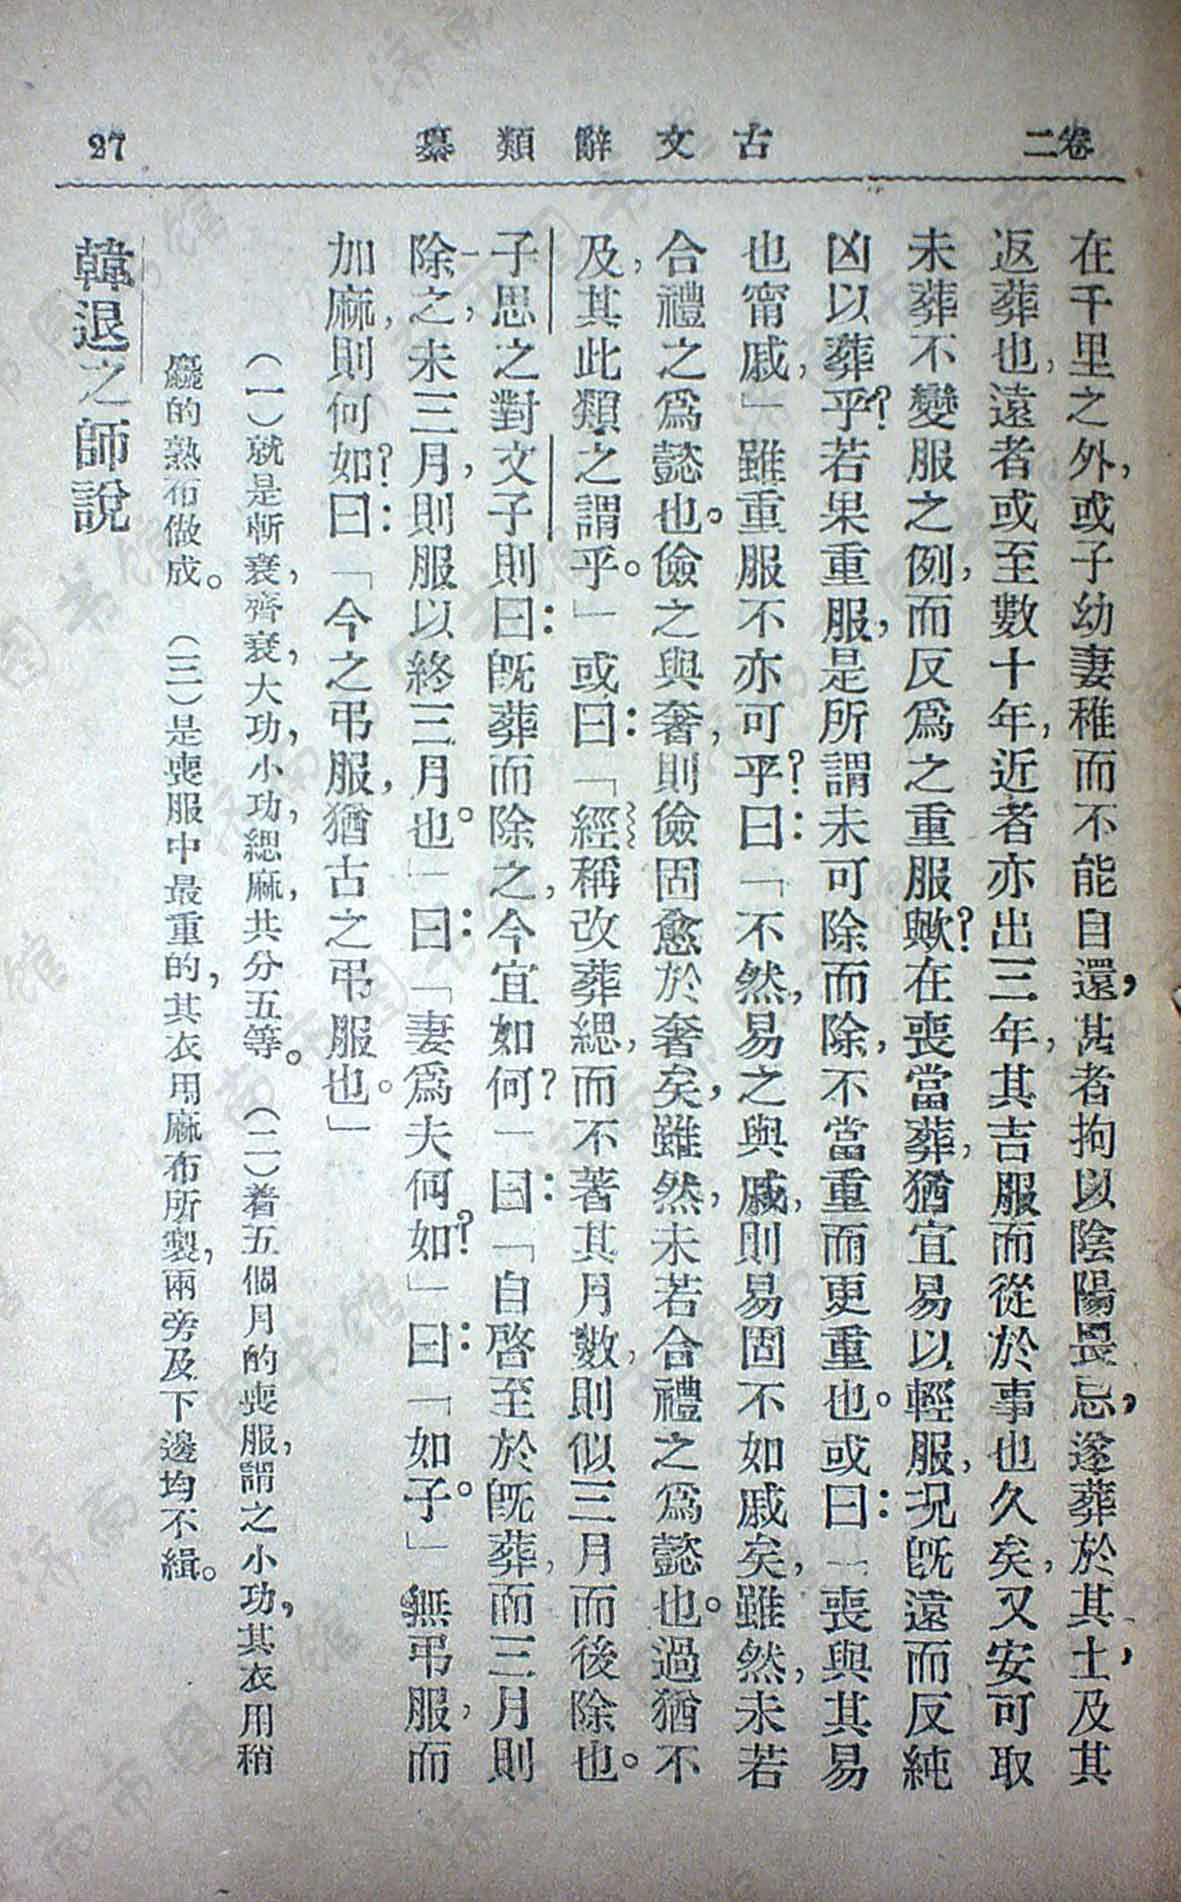 卷二
古文辭類纂
27
在千里之外，或子幼妻稚而不能自還，甚者拘以陰陽畏忌，遂葬於其土，及其
返葬也，遠者或至數十年，近者亦出三年，其吉服而從於事也久矣，又安可取
未葬不變服之例，而反爲之重服歟？在喪當葬，猶宜易以輕服，況旣遠而反純
凶以葬乎？若果重服，是所謂未可除而除，不當重而更重也。或曰：「喪與其易
也甯戚，」雖重服不亦可乎？曰：「不然，易之與戚，則易固不如戚矣，雖然，未若
合禮之爲懿也。儉之與奢，則儉固愈於奢矣，雖然，未若合禮之爲懿也。過猶不
及，其此類之謂乎。」或曰：「經稱改葬緦，而不著其月數，則似三月而後除也。
子思之對文子則曰：旣葬而除之，今宜如何？」曰：「自啓至於旣葬，而三月則
除之，未三月，則服以終三月也。」曰：「妻爲夫何如？」曰：「如子。」無弔服，而
加麻，則何如？曰：「今之弔服，猶古之弔服也。」
（一）就是斬衰，齊衰，大功，小功，緦麻，共分五等。　（二）着五個月的喪服，謂之小功，其衣用稍
麤的熟布做成。　（三）是喪服中最重的，其衣用麻布所製，兩旁及下邊均不緝。
韓退之師說